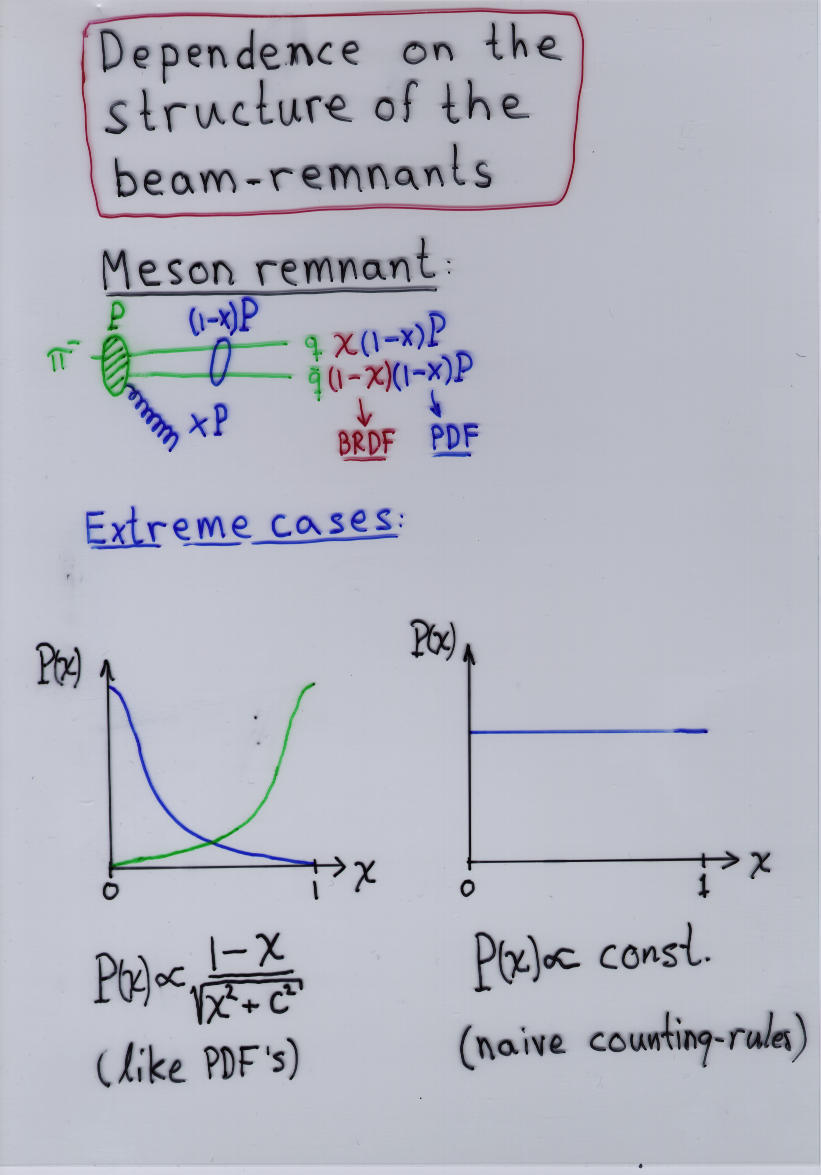 Dependence on the
structure of the
beam-remnants
Meson remnant:
P (1-x)P
π⁻ q χ(1-x)P
q̄ (1-χ)(1-x)P
xP BRDF PDF
Extreme cases:
P(χ) P(χ)
0 1 χ 0 1 χ
P(χ)∝ (1-χ)/√(χ²+c²) P(χ)∝ const.
(like PDF's) (naive counting-rules)